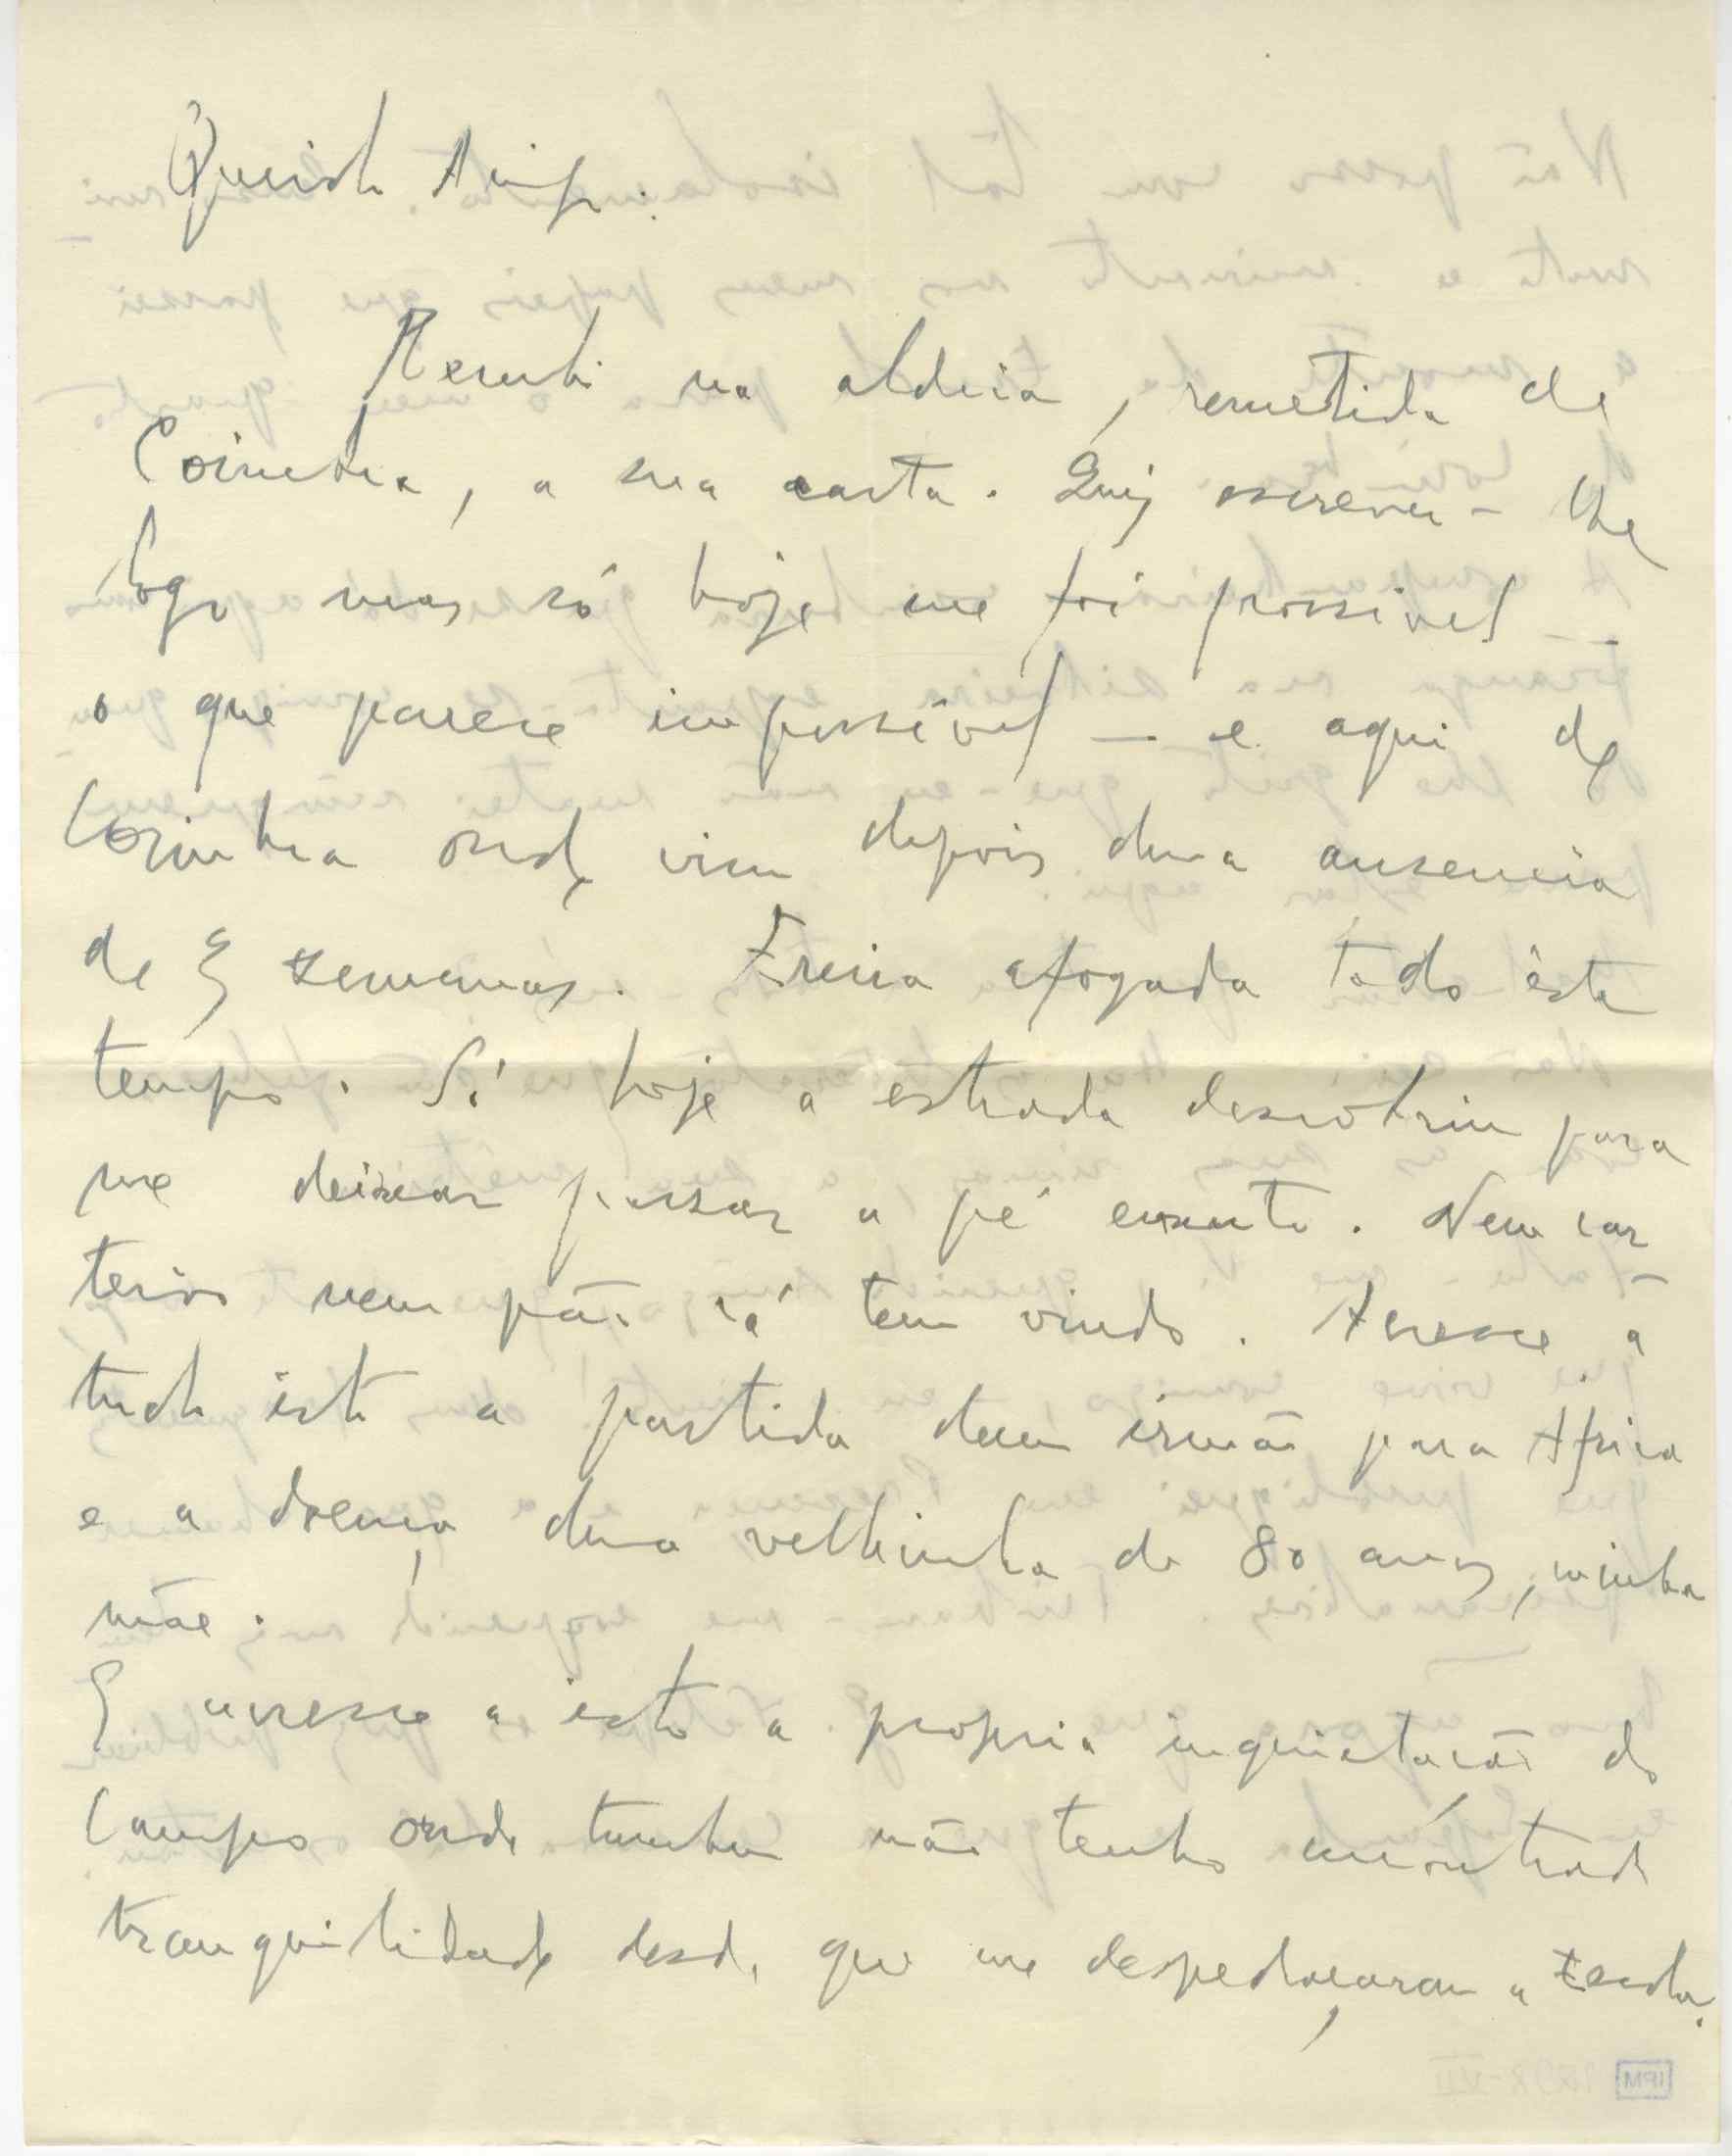 Querido Amigo:
Recebi na aldeia, remetida de
Coimbra, a sua carta. Quiz escrever-lhe
logo mas só hoje me foi possivel —
o que parece impossível — e aqui de
Coimbra onde vim depois duma ausencia
de 3 semanas. Ereira afogada todo êste
tempo. Só hoje a estrada descobriu para
me deixar passar a pé enxuto. Nem car-
teiro nem pão cá tem vindo. Acresce a
tudo isto a partida dum irmão para Africa
e a doença duma velhinha de 80 anos, minha
mãe.
E acresce a isto a propria inquietação do
Campo onde tambem não tenho encontrado
tranquilidade desde que me despedaçaram a Escola.
IPM